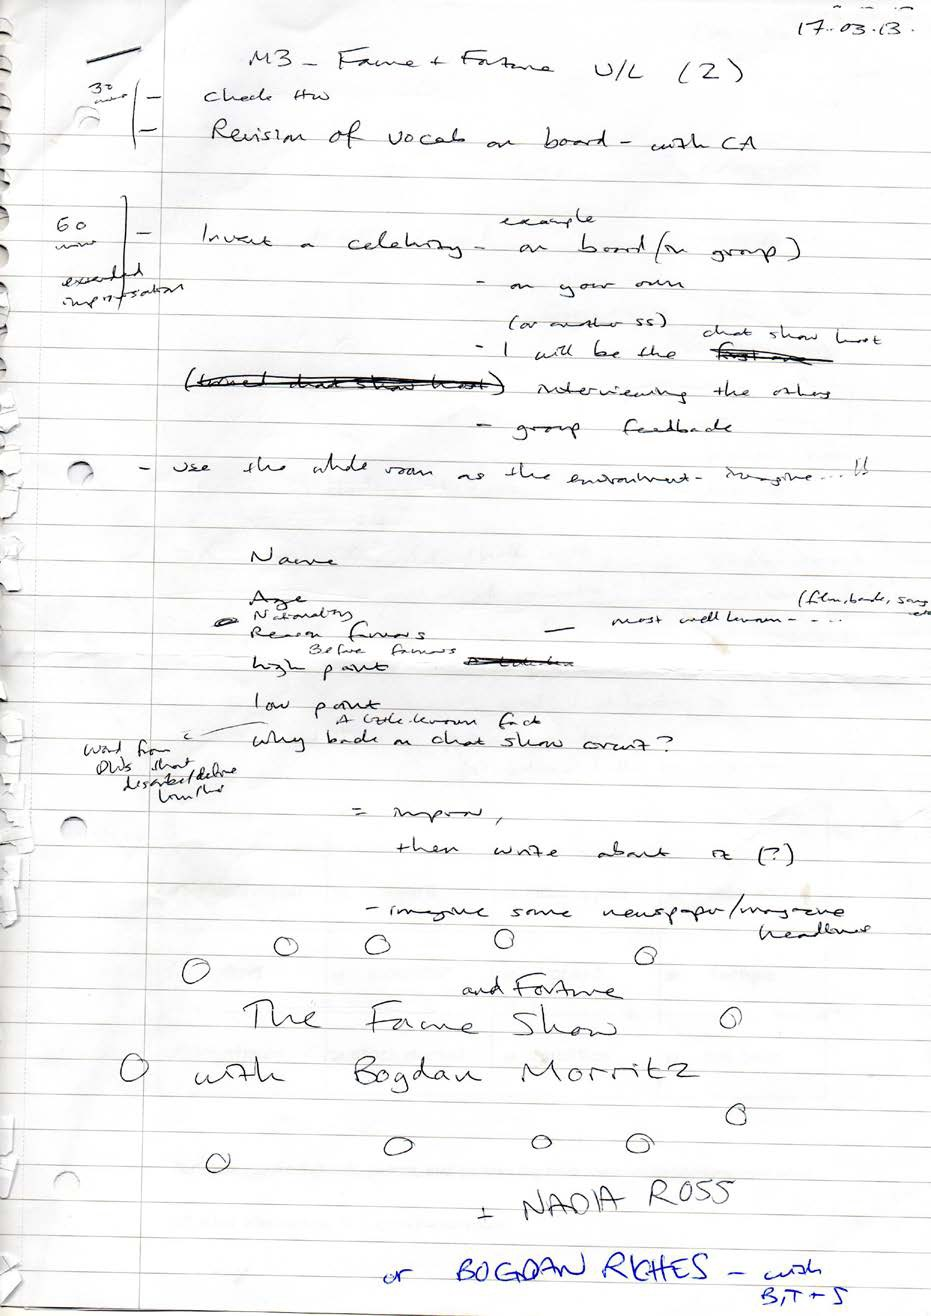 17.03.13.
M3 - Fame + Fortune U/L (2)
30 mins - check HW
- Revision of vocab on board - with CA
60 mins
extended improvisation
example
- Invent a celebrity - on board (in group)
- on your own
(or another ss) chat show host
- I will be the first one
(turned chat show host) interviewing the others
- group feedback
- use the whole room as the environment - imagine...!!
Name
Age
(film, book, song etc
Nationality
Reason famous - most well known - ....
Before famous
high point
low point
A little-known fact
why back on chat show circuit?
word from
that
describe/define
him/her
= improv,
then write about it (?)
- imagine some newspaper/magazine
headlines
and Fortune
The Fame Show
with Bogdan Morritz
+ NADIA ROSS
or BOGDAN RICHES - with
B, T + S